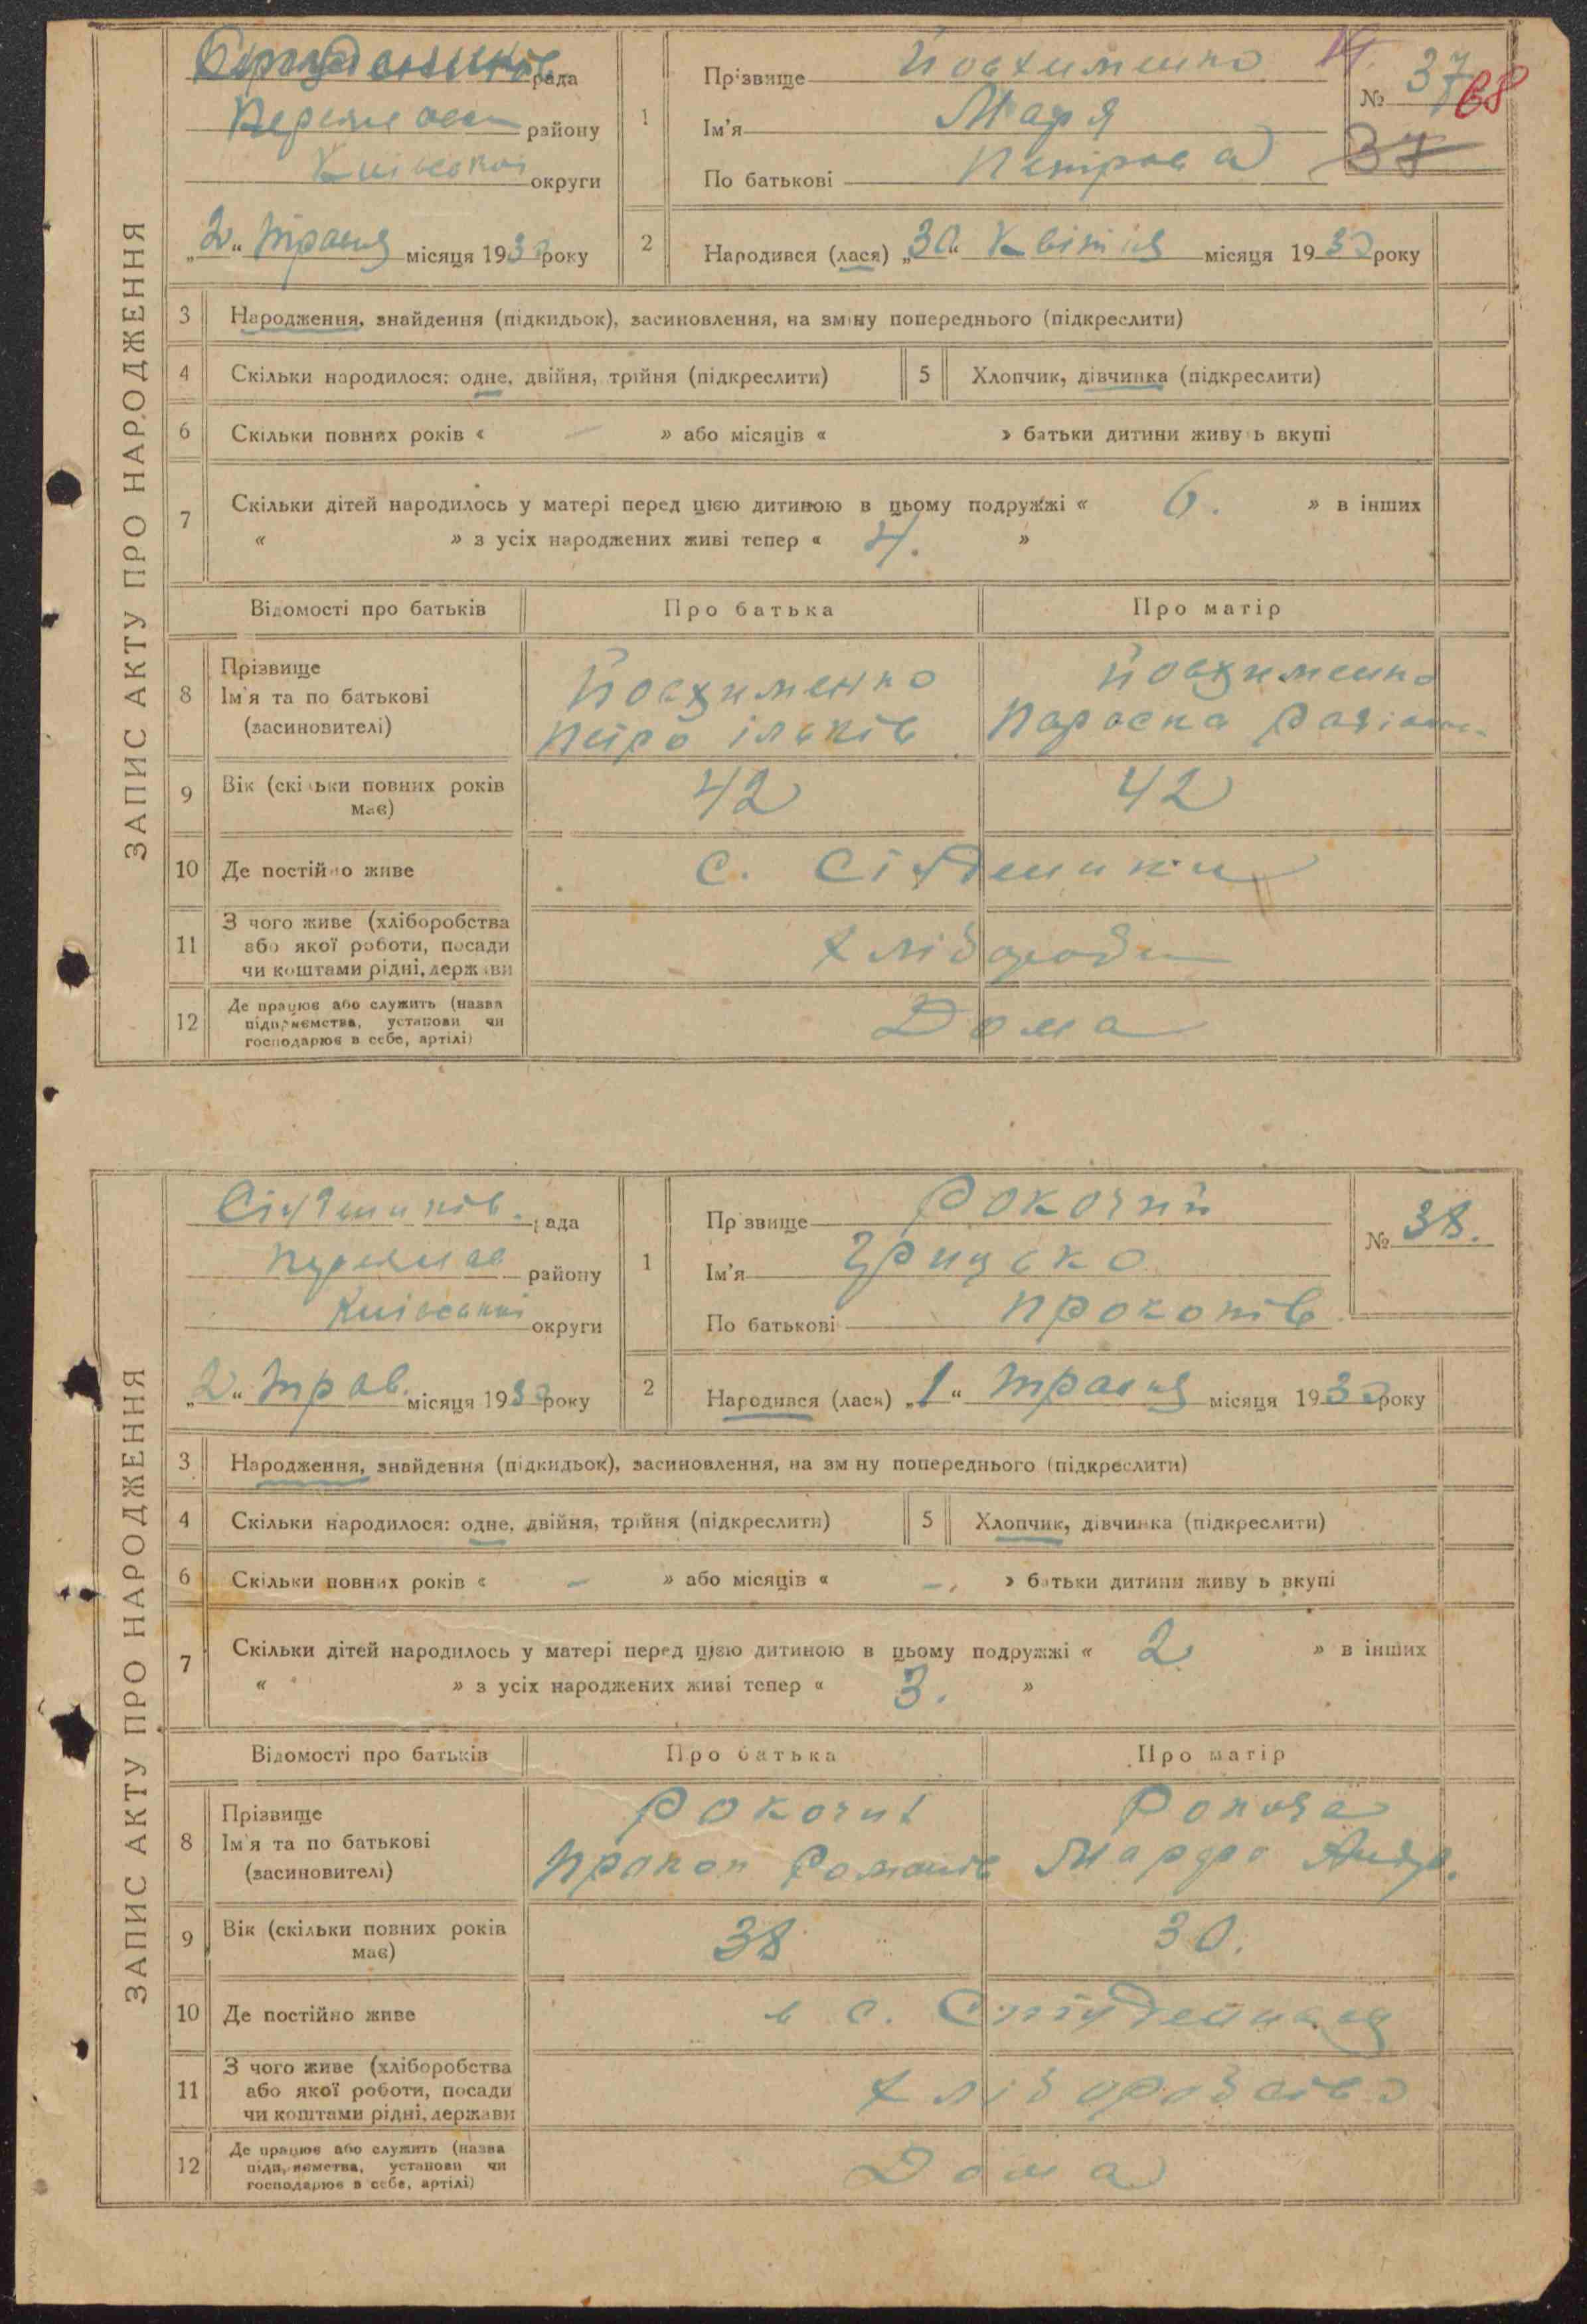 ЗАПИС АКТУ ПРО НАРОДЖЕННЯ
рада
району
округи
„2“ травня місяця 1930 року
1
Прізвище Йовхименно
Ім'я Маря
По батькові Петрова
№ 37
68
37
2
Народився (лася) „30“ Квітня місяця 1930 року
3 Народження, знайдення (підкидьок), засиновлення, на зміну попереднього (підкреслити)
4 Скільки народилося: одне, двійня, трійня (підкреслити)
5 Хлопчик, дівчинка (підкреслити)
6 Скільки повних років « — » або місяців « » батьки дитини живуть вкупі
7 Скільки дітей народилось у матері перед цією дитиною в цьому подружжі « 6. » в інших
« » з усіх народжених живі тепер « 4. »
Відомості про батьків
Про батька
Про матір
8 Прізвище
Ім'я та по батькові
(засиновителі)
Йовхименко
Петро ільків
Йовхименко
Параска
9 Вік (скільки повних років
має)
42
42
10 Де постійно живе
с.
11 З чого живе (хліборобства
або якої роботи, посади
чи коштами рідні, держави
12 Де працює або служить (назва
підприємства, установи чи
господарює в себе, артілі)
Дома
ЗАПИС АКТУ ПРО НАРОДЖЕННЯ
рада
району
округи
„2“ трав. місяця 1930 року
1
Прізвище Рокочий
Ім'я Грицько
По батькові Прокопів
№ 38.
2
Народився (лася) „1“ травня місяця 1930 року
3 Народження, знайдення (підкидьок), засиновлення, на зміну попереднього (підкреслити)
4 Скільки народилося: одне, двійня, трійня (підкреслити)
5 Хлопчик, дівчинка (підкреслити)
6 Скільки повних років « — » або місяців « —. » батьки дитини живуть вкупі
7 Скільки дітей народилось у матері перед цією дитиною в цьому подружжі « 2 » в інших
« » з усіх народжених живі тепер « 3. »
Відомості про батьків
Про батька
Про матір
8 Прізвище
Ім'я та по батькові
(засиновителі)
Рокочий
Прокоп Романів
Рокоча
Марфа Андр.
9 Вік (скільки повних років
має)
38
30.
10 Де постійно живе
в с. Студениках
11 З чого живе (хліборобства
або якої роботи, посади
чи коштами рідні, держави
хліборобсво
12 Де працює або служить (назва
підприємства, установи чи
господарює в себе, артілі)
Дома